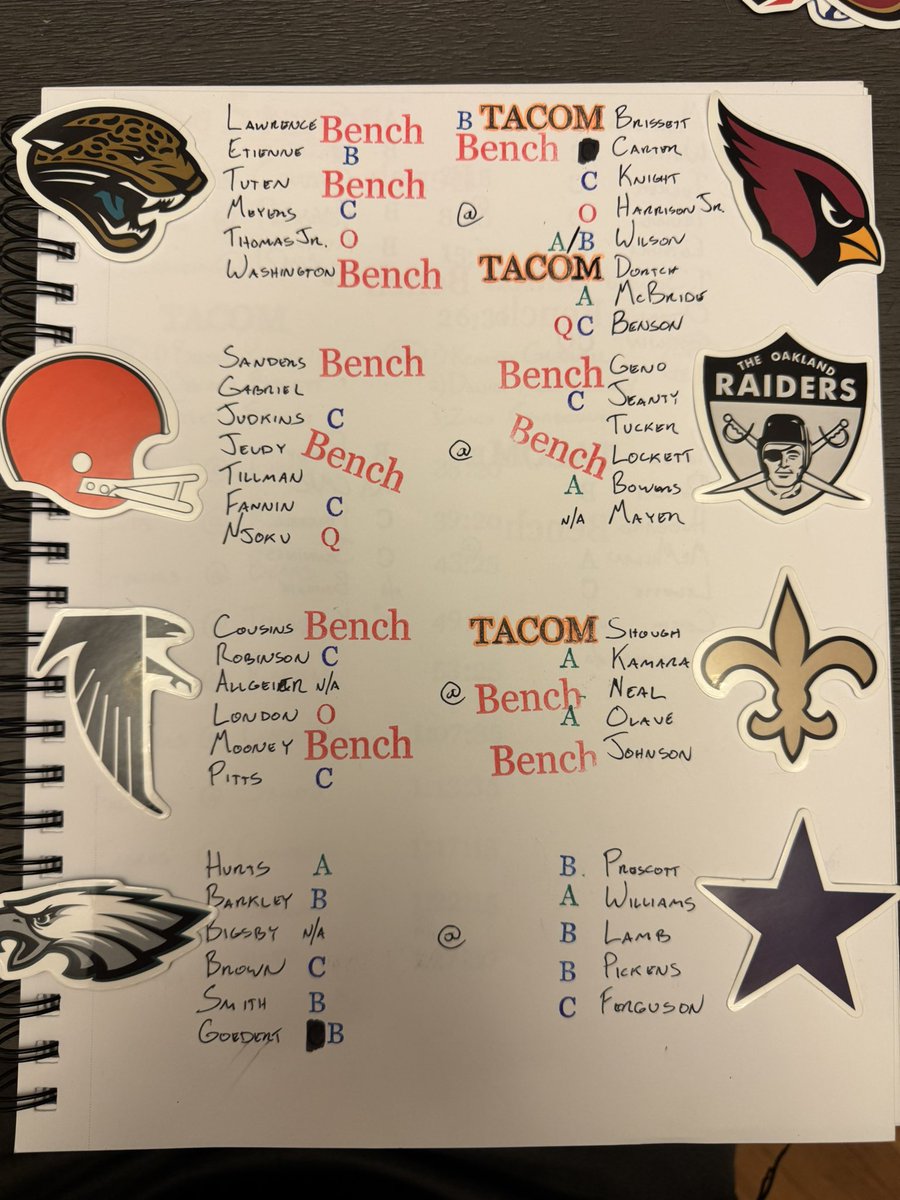 LAWRENCE Bench
ETIENNE B
TUTEN Bench
MEYERS C
THOMAS JR. O
WASHINGTON Bench
@
B TACOM BRISSETT
Bench CARTER
C KNIGHT
O HARRISON JR.
A/B WILSON
TACOM DORTCH
A McBRIDE
Q C BENSON
SANDERS Bench
GABRIEL
JUDKINS C
JEUDY Bench
TILLMAN
FANNIN C
NJOKU Q
@
Bench GENO
C JEANTY
TUCKER
Bench LOCKETT
A BOWERS
N/A MAYER
THE OAKLAND
RAIDERS
COUSINS Bench
ROBINSON C
ALLGEIER N/A
LONDON O
MOONEY Bench
PITTS C
@
TACOM SHOUGH
A KAMARA
Bench NEAL
A OLAVE
Bench JOHNSON
HURTS A
BARKLEY B
BIGSBY N/A
BROWN C
SMITH B
GOEDERT B
@
B. PRESCOTT
A WILLIAMS
B LAMB
B PICKENS
C FERGUSON